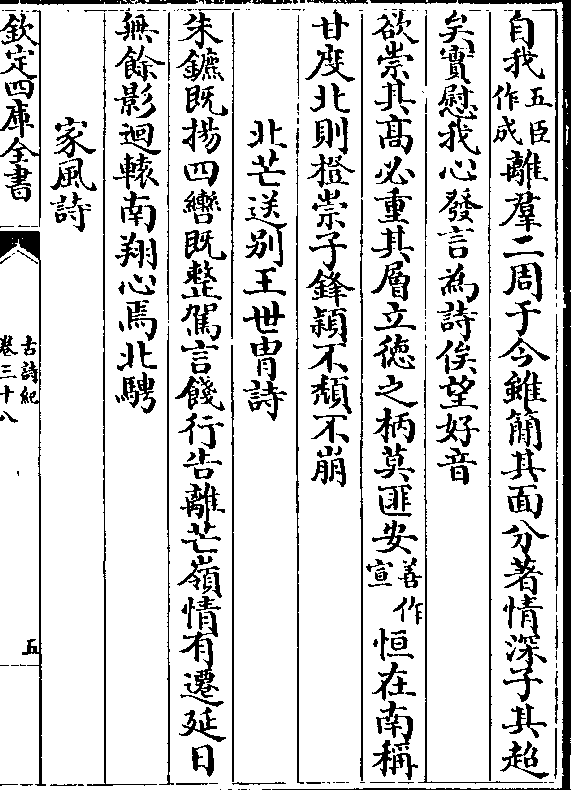 自我五臣作成離羣二周于今雖簡其面分著情深子其超
矣實慰我心發言為詩俟望好音
欲崇其髙必重其層立徳之柄莫匪安善作宣恒在南稱
甘度北則橙崇子鋒穎不頽不崩
北芒送别王世胄詩
朱鑣既揚四轡既整駕言餞行告離芒嶺情有遷延日
無餘影迴轅南翔心焉北騁
家風詩
欽定四庫全書
古詩紀
卷三十八
五